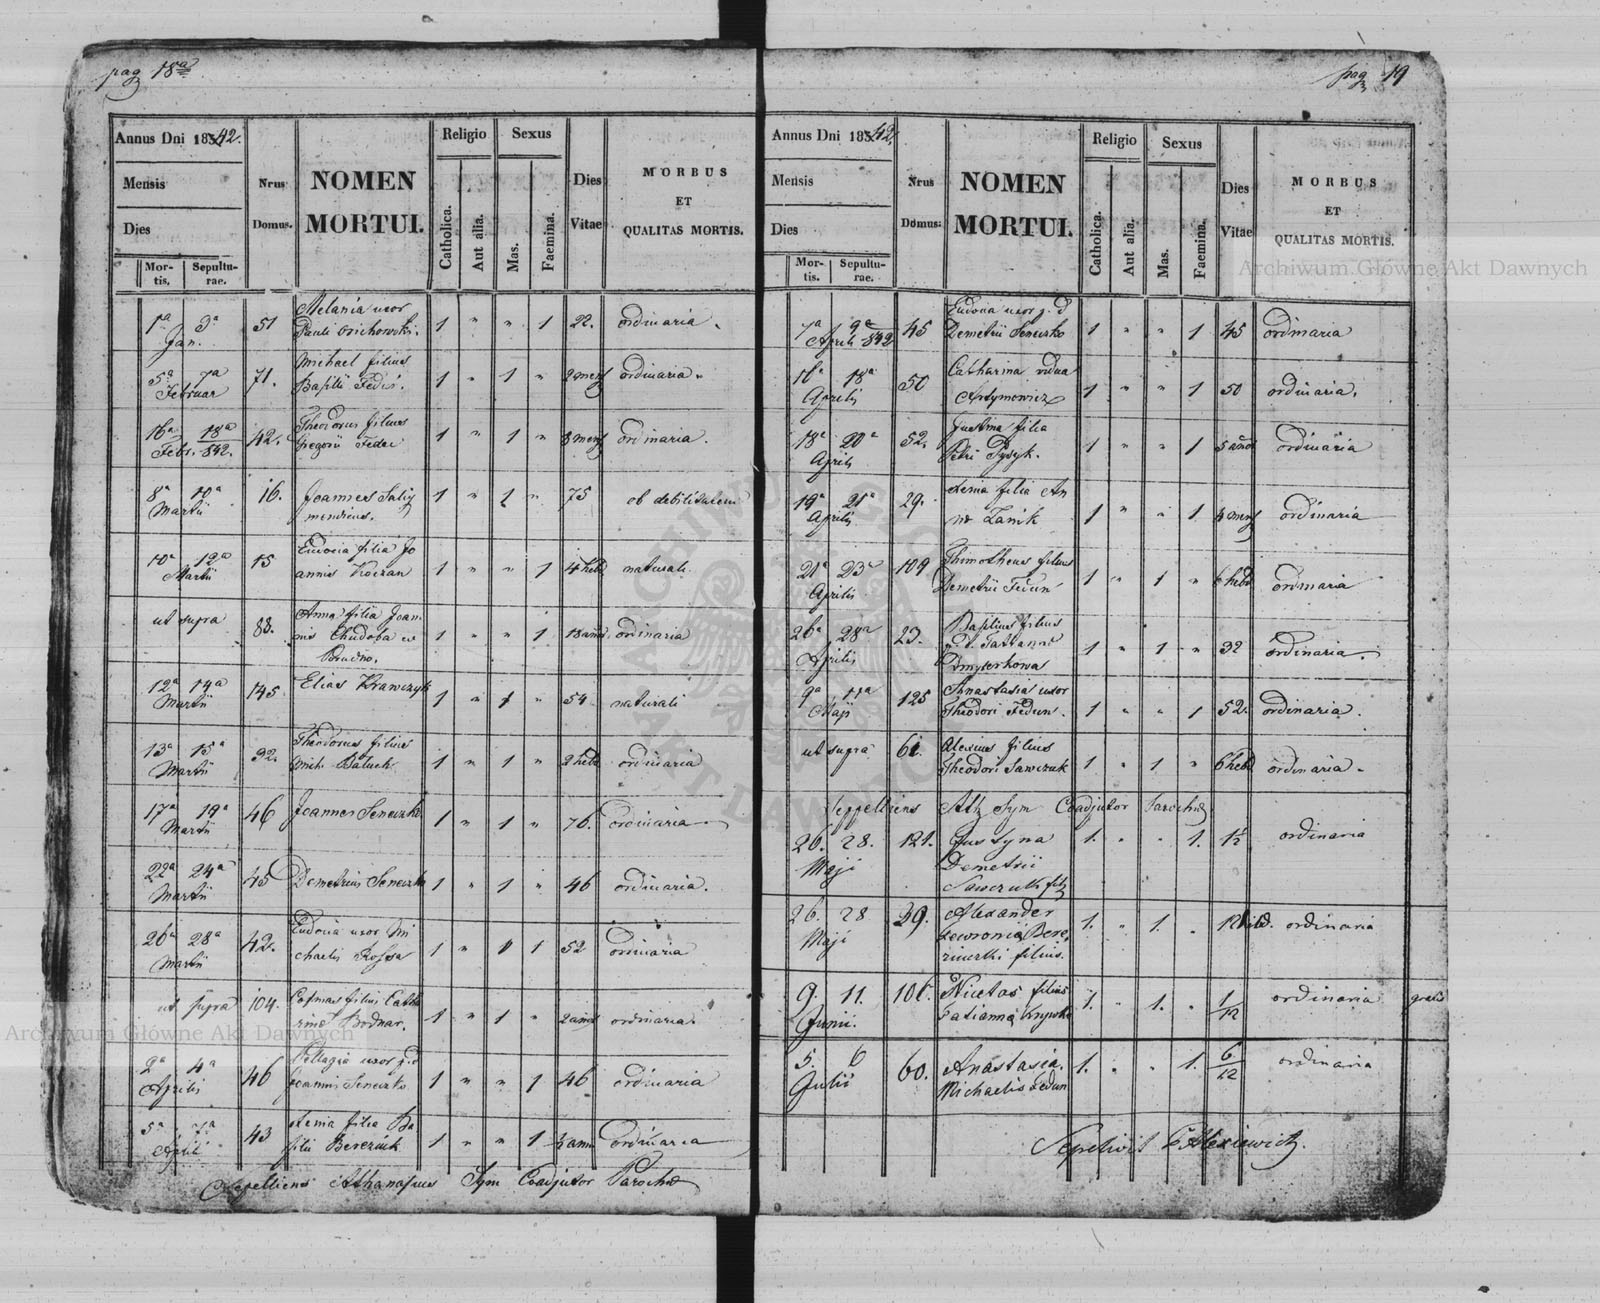 pag 18a
Annus Dni 1842.
Mensis
Dies
Mortis, Sepulturae.
Nrus Domus.
NOMEN MORTUI.
Religio
Catholica. Aut alia.
Sexus
Mas. Faemina.
Dies Vitae
MORBUS ET QUALITAS MORTIS.
1a 3a Jan. 51 Melania uxor Pauli 1 " " 1 22. ordinaria.
5a 7a Februar 71. Michael filius Basilii Fedun. 1 " 1 " 2 mens ordinaria.
16a 18a Febr. 842. 42. Theodorus filius Gregorii 1 " 1 " 3 mens ordinaria.
8a 10a Martii 16. Joannes mendicus. 1 " 1 " 75 ob debilitatem
10a 12a Martii 15 Eudocia filia Joannis Koczan 1 " " 1 4 hebd naturali
ut supra 88. Anna filia Joannis Chudoba 1 " " 1 18 ordinaria
12a 14a Martii 145 Elias Krawczyk 1 " 1 " 54 naturali
13a 15a Martii 92. Theodorus filius Mich. 1 " 1 " 2 hebd ordinaria
17a 19a Martii 46 Joannes Seneczko 1 " 1 " 76. ordinaria
22a 24a Martii 45 Demetrius Seneczko 1 " 1 " 46 ordinaria.
26a 28a Martii 42. Eudocia uxor Michaelis 1 " 1 52 ordinaria
ut supra 104. Cosmas filius Catharinae Bodnar. 1 " 1 " 2 ordinaria.
2a 4a Aprilis 46 Pellagia uxor Joannis Seneczko 1 " " 1 46 ordinaria
5a 7a April 43 Xenia filia Basilii Bereziuk 1 " " 1 ordinaria
Sepelliens Athanasius Sym Coadjutor Parochus
pag 19
Annus Dni 1842.
Mensis
Dies
Mortis. Sepulturae.
Nrus Domus.
NOMEN MORTUI.
Religio
Catholica. Aut alia.
Sexus
Mas. Faemina.
Dies Vitae
MORBUS ET QUALITAS MORTIS.
7a 9a Aprili 842 45 Eudocia uxor Demetrii Seneczko 1 " " 1 45 ordinaria
16a 18a Aprilis 50 Catharina vidua Artymowicz 1 " " 1 50 ordinaria.
18a 20a April 52. Justina filia Petri 1 " " 1 5 ordinaria
19a 21a Aprilis 29. Xenia filia Annae 1 " " 1 4 mens ordinaria
21a 23a Aprilis 109 Thimotheus filius Demetrii Fedun 1 " 1 " 6 hebd ordinaria
26a 28a Aprilis 23. Basilius filius Tatianae Dmyterkowa 1 " 1 " 32 ordinaria.
9a 11a Maji 125 Anastasia uxor Theodori Fedun. 1 " " 1 52. ordinaria.
ut supra 61. Alexius filius Theodori Sawczuk 1 " 1 " 6 hebd ordinaria.
Seppelliens Ath Sym Coadjutor Parochus
26. 28. Maji 121. Justyna Demetrii Sawczuk filia 1. " " 1. 1½ ordinaria
26. 28 Maji 39. Alexander filius. 1. " 1. " ordinaria
9. 11. Junii. Nicetas filius Tatianna 1. " 1. " 1/12 ordinaria gratis
5. 6 Julii 60. Anastasia Michaelis Fedun 1. " " 1. 6/12 ordinaria
Sepelivit
Archiwum Główne Akt Dawnych
Archiwum Główne Akt Dawnych
ARCHIWUM GŁÓWNE AKT DAWNYCH